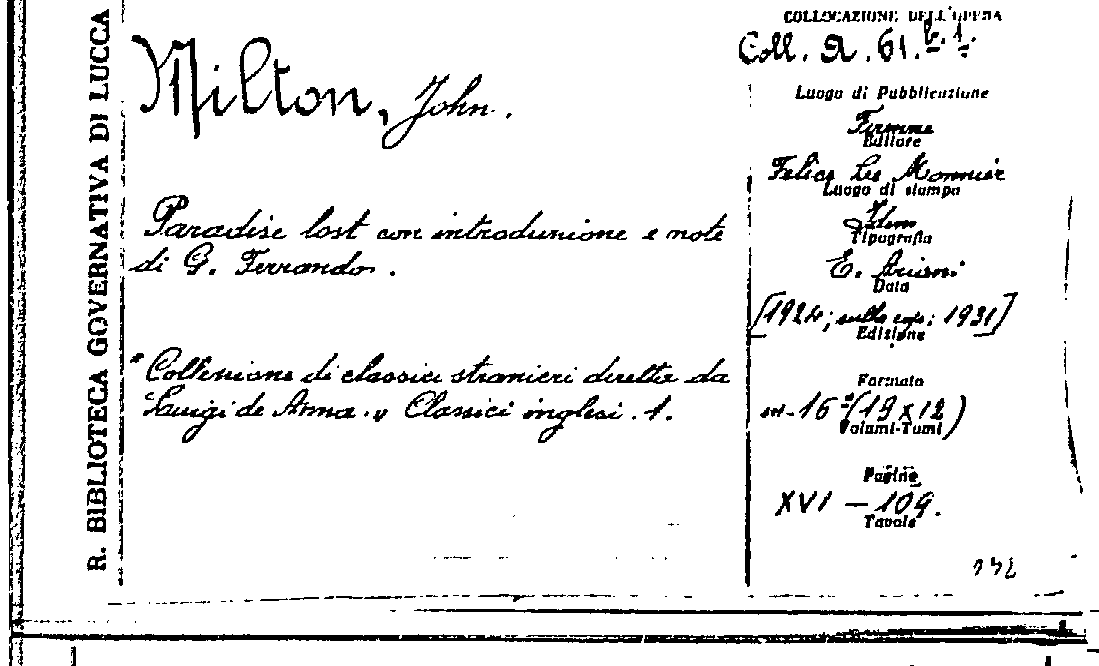 R. BIBLIOTECA GOVERNATIVA DI LUCCA
Milton, John.
Paradise lost con introduzione e note
di G. Ferrando.
"Collezione di classici stranieri diretta da
Luigi de Anna." Classici inglesi. 1.
COLLOCAZIONE DELL'OPERA
Coll. A. 61. b. 1.
Luogo di Pubblicazione
Firenze
Editore
Felice Le Monnier
Luogo di stampa
Idem
Tipografia
E. Ariani
Data
[1924; sulla cop: 1931]
Edizione
Formato
in-16° (19 x 12)
Volumi-Tomi
Pagine
XVI - 109.
Tavole